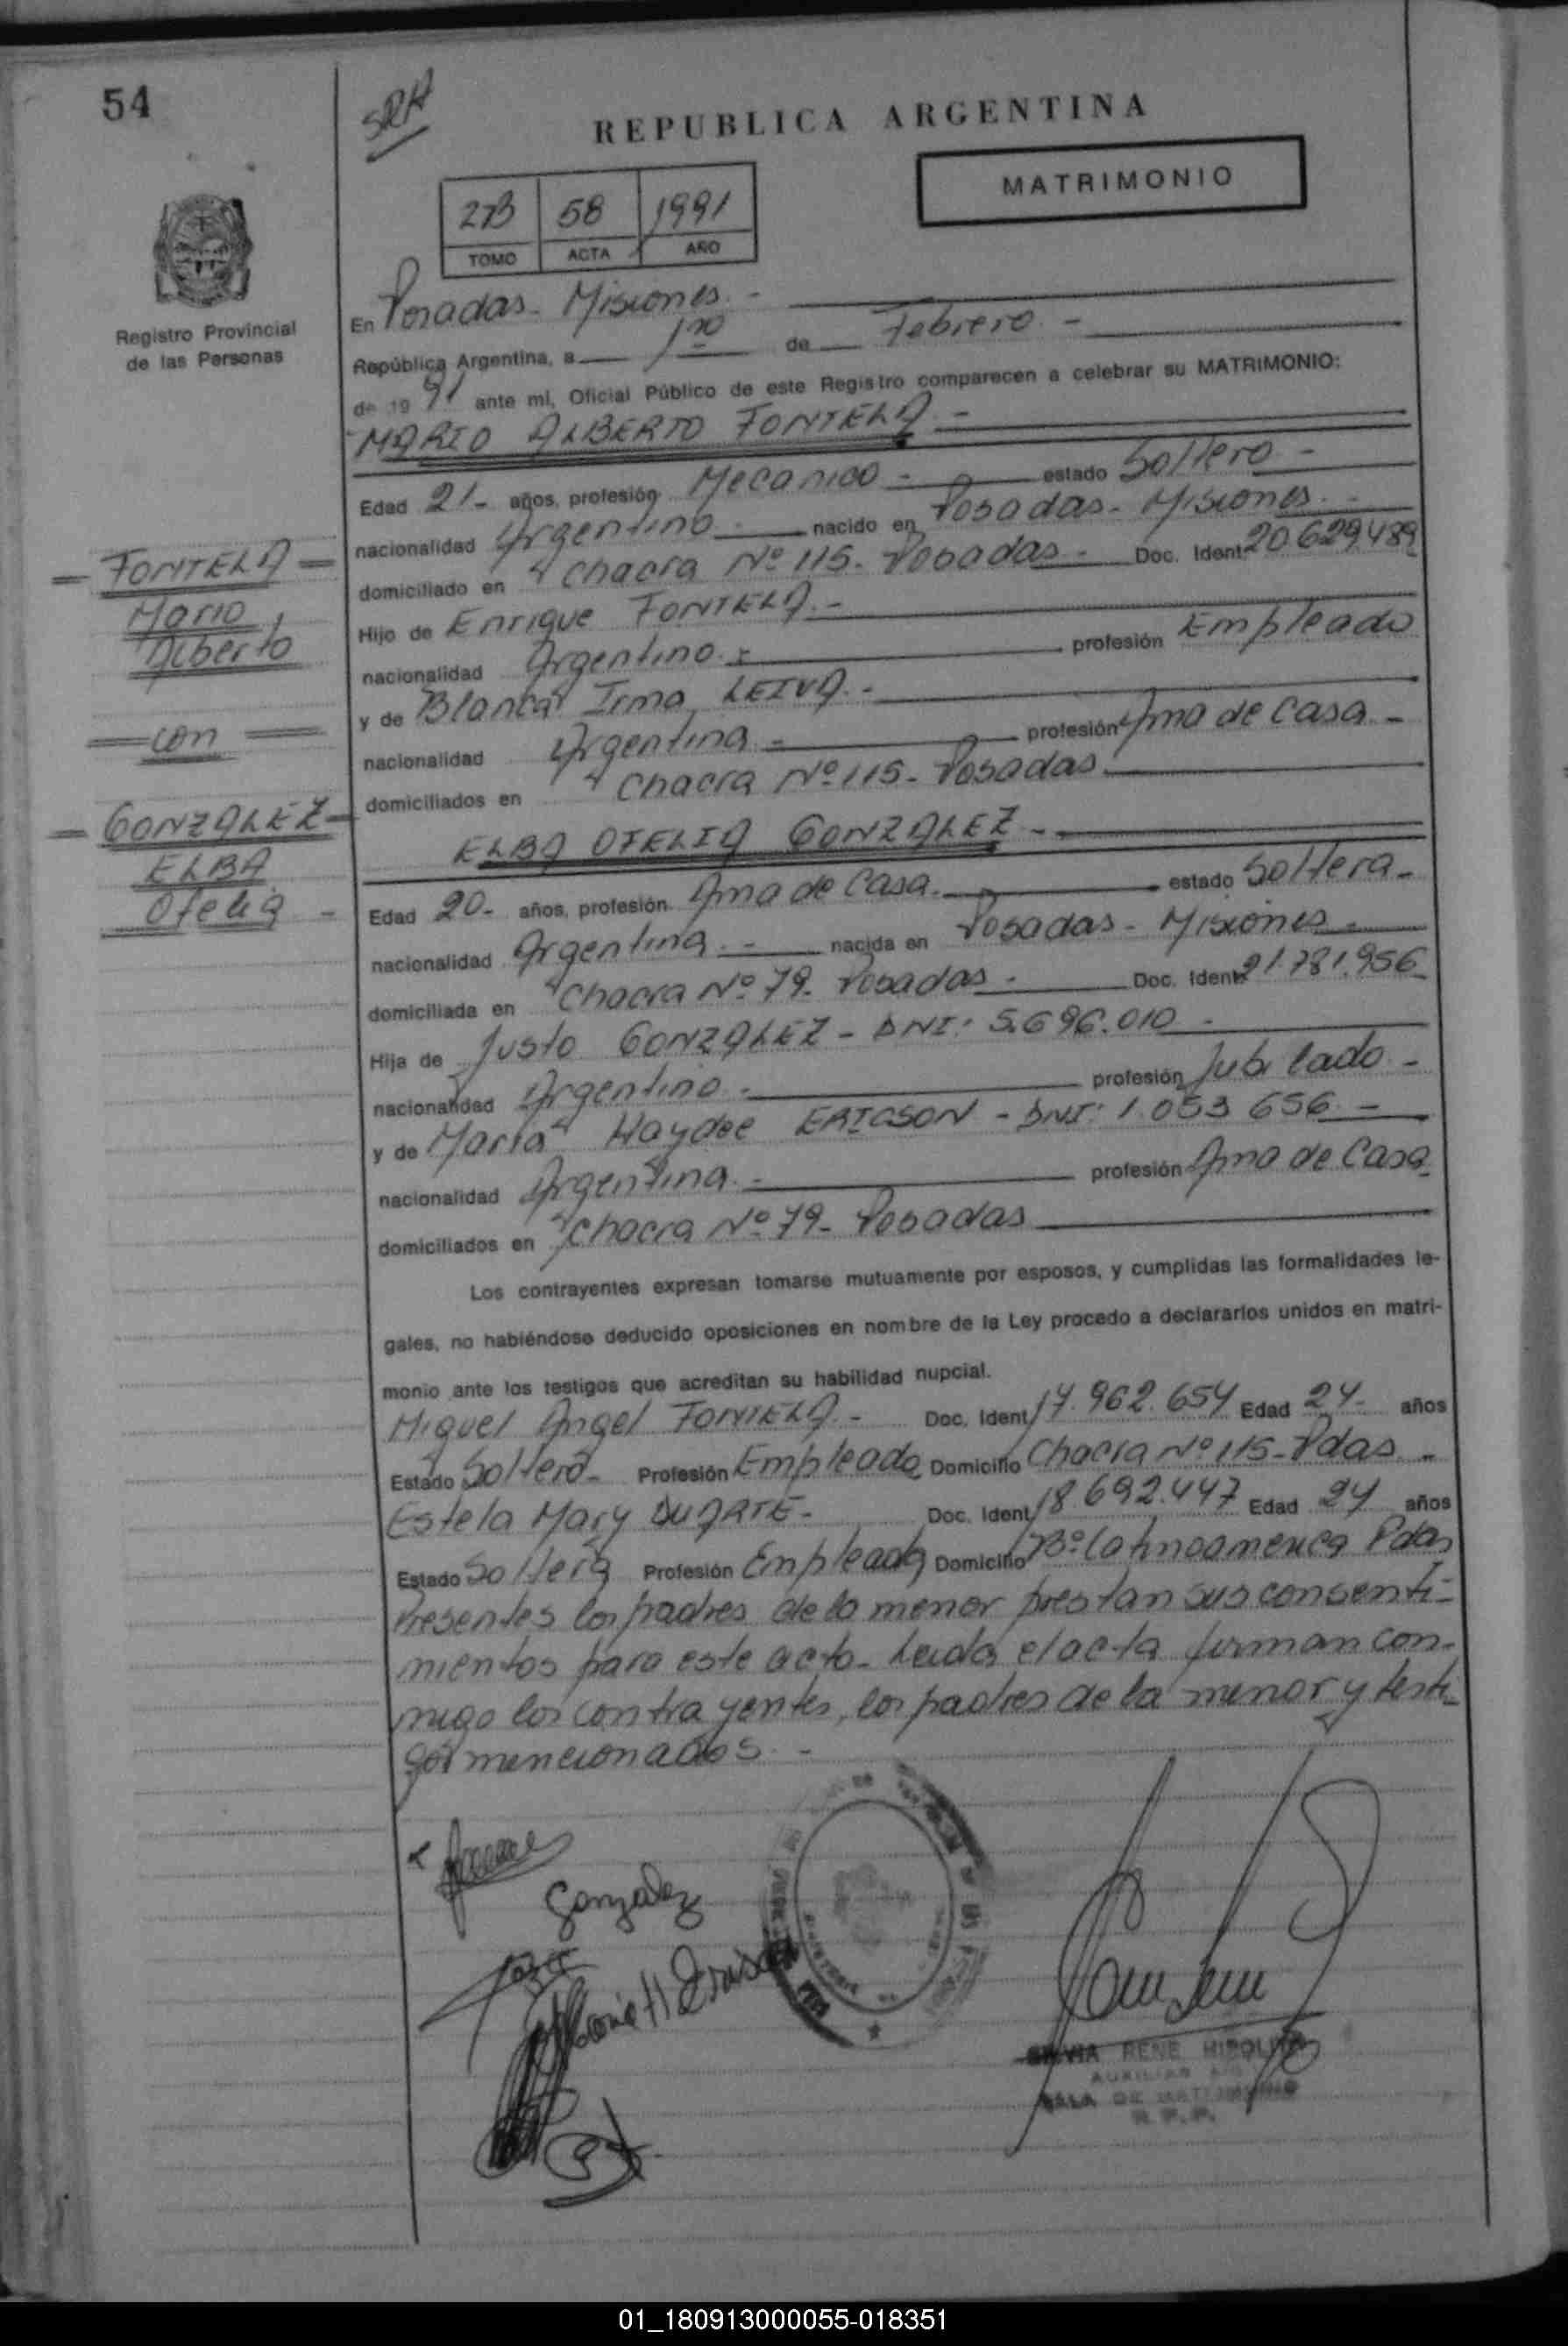 54
SRH
REPUBLICA ARGENTINA
MATRIMONIO
2B 58 1991
TOMO ACTA AÑO
Registro Provincial
de las Personas
En Posadas - Misiones. -
República Argentina, a 1ro de Febrero. -
de 1991 ante mi, Oficial Público de este Registro comparecen a celebrar su MATRIMONIO:
MARIO ALBERTO FONTELA. -
Edad 21- años, profesión Mecanico - estado Soltero. -
nacionalidad Argentino. - nacido en Posadas - Misiones. -
domiciliado en Chacra Nº 115. Posadas - Doc. Ident. 20.629.489
Hijo de Enrique FONTELA. -
nacionalidad Argentino. - profesión Empleado
y de Blanca Irma LEIVA. -
nacionalidad Argentina. - profesión Ama de Casa. -
domiciliados en Chacra Nº 115 - Posadas.
FONTELA
Mario
Alberto
con
GONZALEZ
ELBA
Ofelia -
ELBA OFELIA GONZALEZ. -
Edad 20- años, profesión Ama de Casa. estado Soltera -
nacionalidad Argentina. - nacida en Posadas - Misiones. -
domiciliada en Chacra Nº 79. Posadas - Doc. Ident. 21.781.956
Hija de Justo GONZALEZ - DNI: 5.696.010 -
nacionalidad Argentino. - profesión Jubilado. -
y de Maria Haydee ERICSON - DNI: 1.053 656. -
nacionalidad Argentina. - profesión Ama de Casa
domiciliados en Chacra Nº 79 - Posadas
Los contrayentes expresan tomarse mutuamente por esposos, y cumplidas las formalidades le-
gales, no habiéndose deducido oposiciones en nombre de la Ley procedo a declararlos unidos en matri-
monio ante los testigos que acreditan su habilidad nupcial.
Miguel Angel FONTELA. - Doc. Ident. 17.962.654 Edad 24- años
Estado Soltero- Profesión Empleado Domicilio Chacra Nº 115 - Pdas. -
Estela Mary DUARTE - Doc. Ident. 18.692.447 Edad 24 años
Estado Soltera Profesión Empleada Domicilio Bº Latinoamerica Pdas
Presentes los padres de la menor prestan sus consenti-
mientos para este acto - Leida el acta firman con-
migo los contrayentes, los padres de la menor y testi-
gos mencionados. -
Gonzalez
SILVIA RENE HIPOLITO
AUXILIAR
SALA DE MATRIMONIO
R. P. P.
01_180913000055-018351